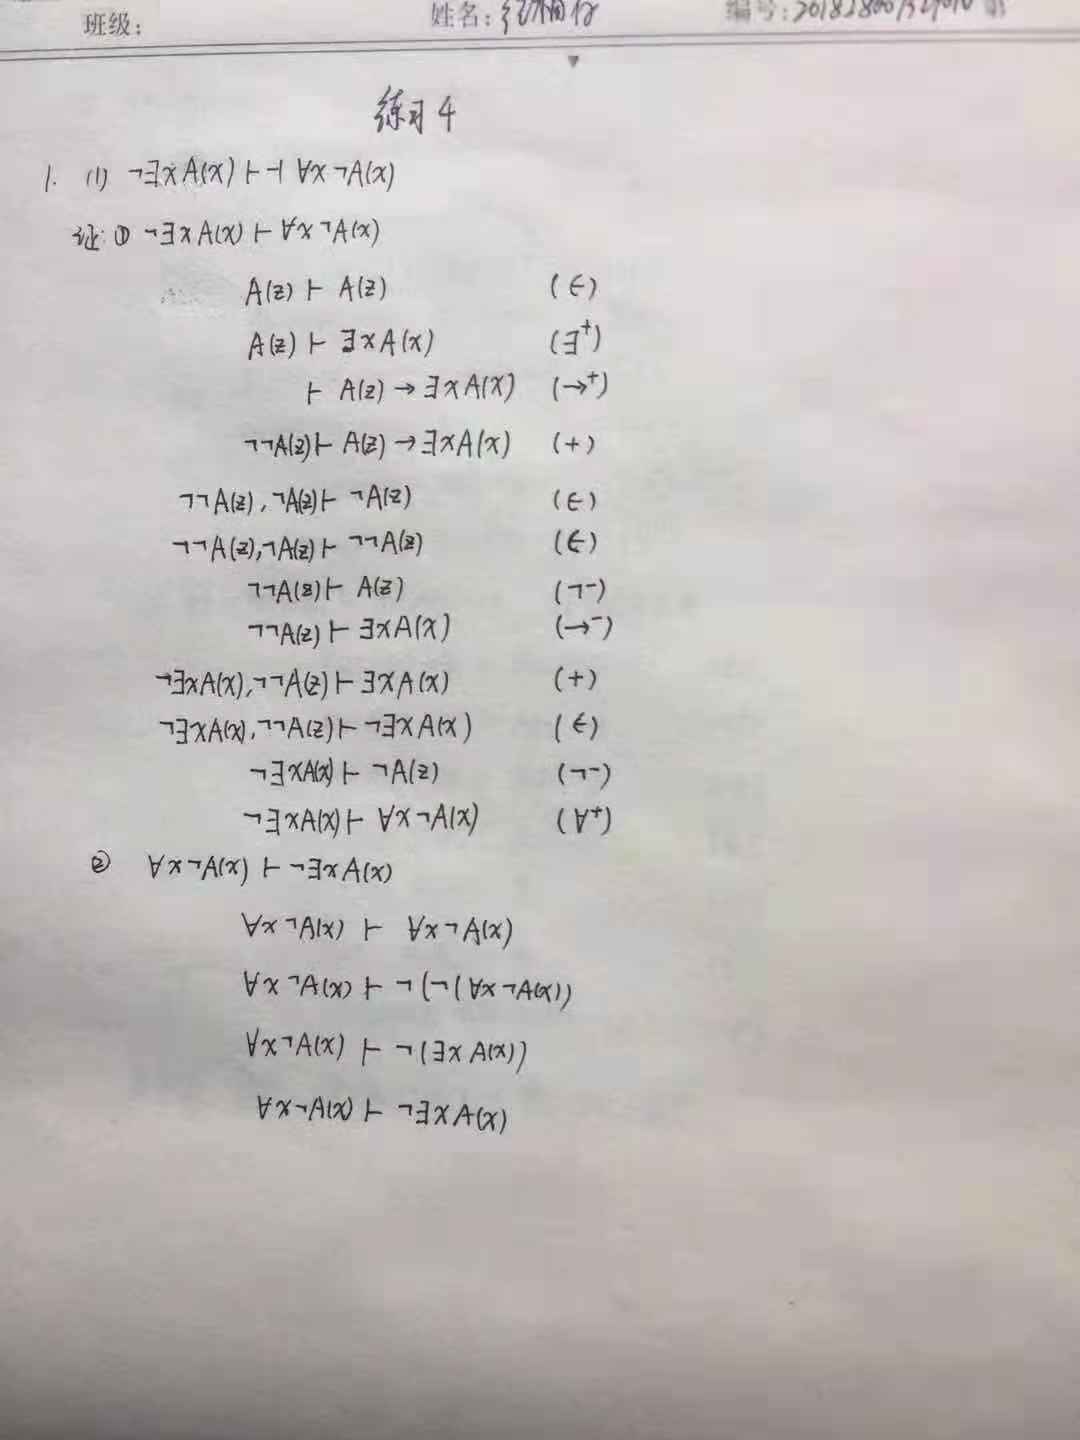 班级: 姓名: 编号:
练习4
1. (1) ¬∃xA(x) ⊢⊣ ∀x¬A(x)
证: ① ¬∃xA(x) ⊢ ∀x¬A(x)
A(z) ⊢ A(z) (∈)
A(z) ⊢ ∃xA(x) (∃⁺)
⊢ A(z) → ∃xA(x) (→⁺)
¬¬A(z) ⊢ A(z) → ∃xA(x) (+)
¬¬A(z), ¬A(z) ⊢ ¬A(z) (∈)
¬¬A(z), ¬A(z) ⊢ ¬¬A(z) (∈)
¬¬A(z) ⊢ A(z) (¬⁻)
¬¬A(z) ⊢ ∃xA(x) (→⁻)
¬∃xA(x), ¬¬A(z) ⊢ ∃xA(x) (+)
¬∃xA(x), ¬¬A(z) ⊢ ¬∃xA(x) (∈)
¬∃xA(x) ⊢ ¬A(z) (¬⁻)
¬∃xA(x) ⊢ ∀x¬A(x) (∀⁺)
② ∀x¬A(x) ⊢ ¬∃xA(x)
∀x¬A(x) ⊢ ∀x¬A(x)
∀x¬A(x) ⊢ ¬(¬(∀x¬A(x)))
∀x¬A(x) ⊢ ¬(∃xA(x))
∀x¬A(x) ⊢ ¬∃xA(x)